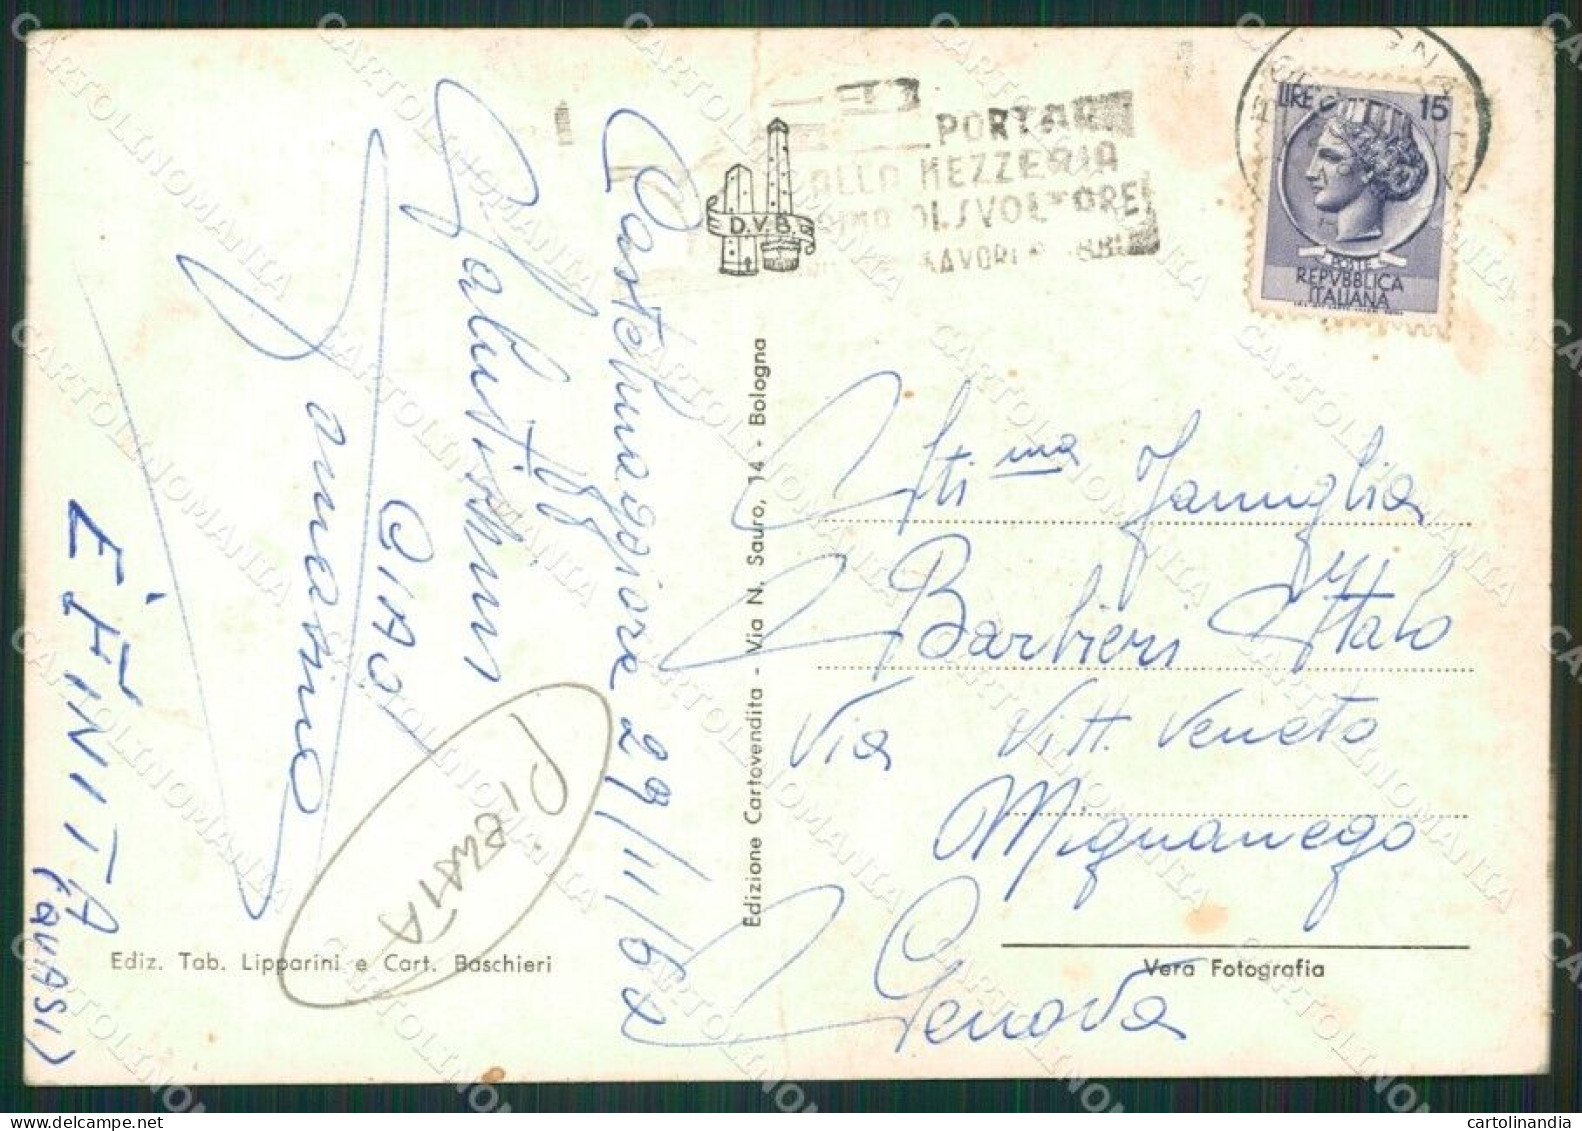 Castelmaggiore 29/11/62
Salutissimi
Tommasino
CIAO!
È FINITA
(QUASI)
PIEGATA
Ediz. Tab. Lipparini e Cart. Baschieri
Edizione Cartovendita - Via N. Sauro, 14 - Bologna
D.V.B.
PORTAR
ALLA MEZZERIA
DI SVOLTARE
LIRE 15
POSTE
REPVBBLICA
ITALIANA
Sti ma Famiglia
Barbieri Italo
Via Vitt. Veneto
Mignanego
Genova
Vera Fotografia
CARTOLINOMANIA
cartolinandia